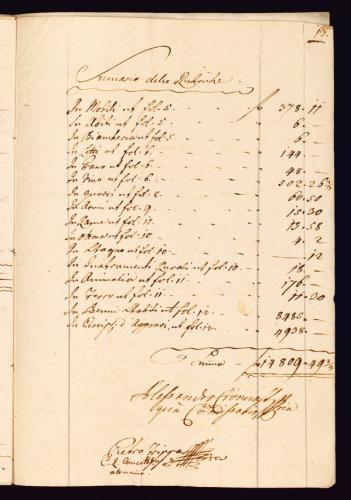 15.
Sumario delle Rubriche
In Mobili ut fol. 5. f 378 - 11
In Abiti ut fol. 5. 6 -
In Biancheria ut fol. 5. 6 -
In Letti ut fol. 6. 144 -
In Grano ut fol. 6. 48 -
In Vino ut fol. 6. 502 - 26
In ut fol. 8. 60 - 50
In Armi ut fol. 9. 15 - 30
In Rame ut fol. 10. 13 - 58
In ut fol. 10. 4 - 2
In Stagno ut fol. 10. - 12
In Instrumenti Rurali ut fol. 10. 18 -
In Animalia ut fol. 11. 176 -
In ut fol. 11. 11 - 20
In Benni Stabili ut fol. 12. 8485 -
In ut fol. 12. 4938 -
Suma 14809 - 49
Alessandro

Pietro